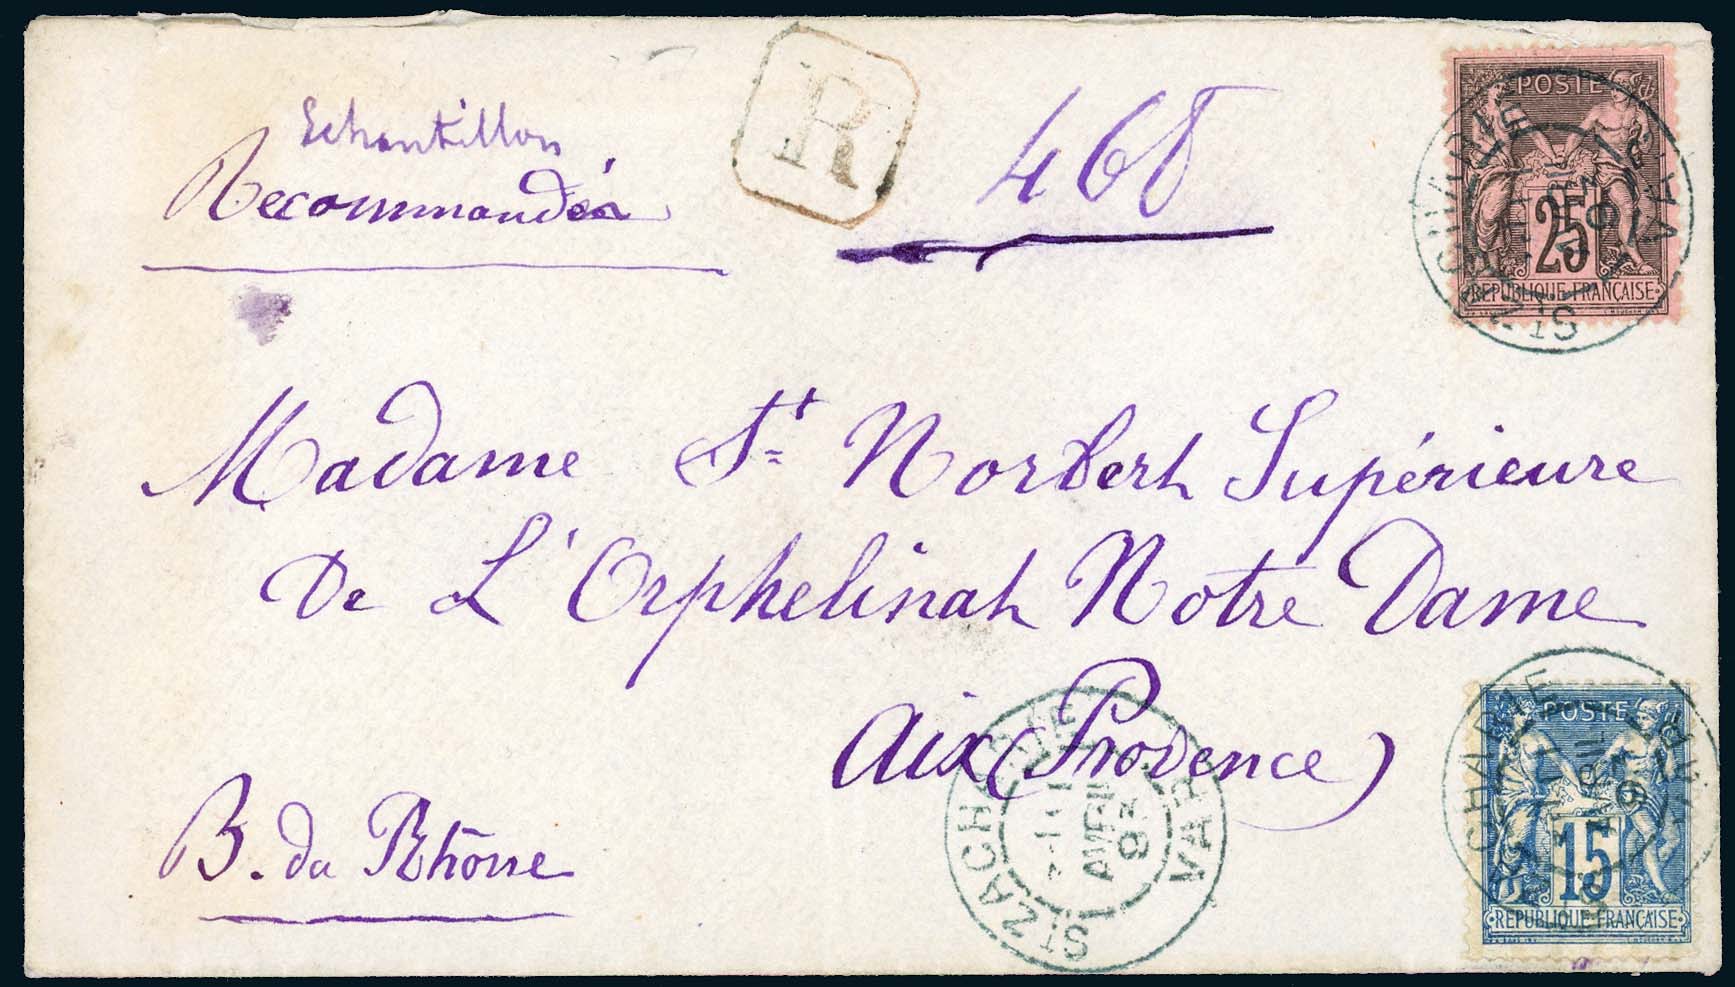 Echantillon
Recommandée
R
468
POSTE
25
RÉPUBLIQUE FRANÇAISE
Madame St Norbert Supérieure
De L'Orphelinat Notre Dame
Aix (Provence)
B. du Rhône
ST ZACHARIE
AVRIL
93
VAR
POSTE
15
RÉPUBLIQUE FRANÇAISE